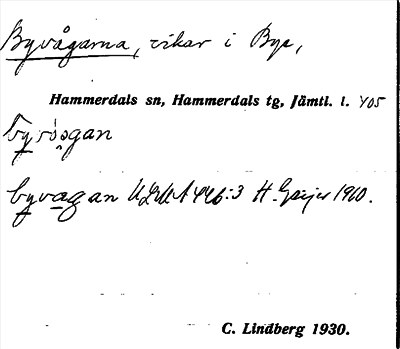 Byvågarna, vikar i Bye,
Hammerdals sn, Hammerdals tg, Jämtl. l. 405
byvågan
byvagan ULMA 446:3 H. Geijer 1910.
C. Lindberg 1930.